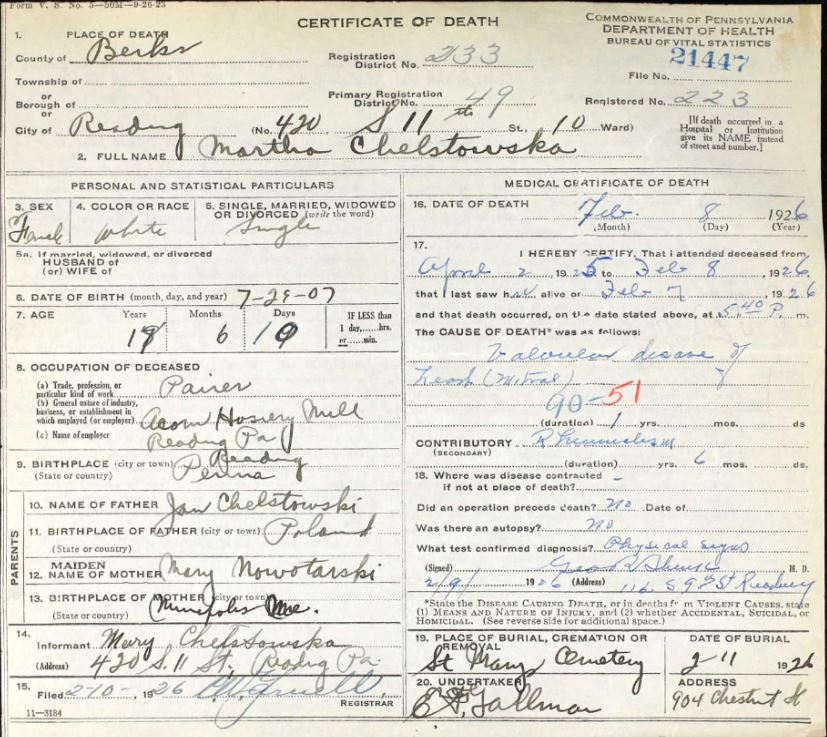 Form V. S. No. 5—50M—9-26-23
CERTIFICATE OF DEATH
COMMONWEALTH OF PENNSYLVANIA
DEPARTMENT OF HEALTH
BUREAU OF VITAL STATISTICS
1. PLACE OF DEATH
County of Berks
Registration District No. 233
21447
File No.
Township of
or
Borough of
or
Primary Registration District No. 49
Registered No. 223
City of Reading (No. 420 S 11 th St., 10 Ward)
[If death occurred in a Hospital or Institution give its NAME instead of street and number.]
2. FULL NAME Martha Chelstowska
PERSONAL AND STATISTICAL PARTICULARS
3. SEX
4. COLOR OR RACE White
5. SINGLE, MARRIED, WIDOWED OR DIVORCED (write the word) Single
5a. If married, widowed, or divorced
HUSBAND of
(or) WIFE of
6. DATE OF BIRTH (month, day, and year) 7-29-07
7. AGE Years Months Days IF LESS than 1 day,....hrs. or....min.
18 6 10
8. OCCUPATION OF DECEASED
(a) Trade, profession, or particular kind of work Pairer
(b) General nature of industry, business, or establishment in which employed (or employer) Acorn Hosiery Mill
(c) Name of employer Reading Pa
9. BIRTHPLACE (city or town) Reading
(State or country) Penna
PARENTS
10. NAME OF FATHER Jan Chelstowski
11. BIRTHPLACE OF FATHER (city or town) Poland
(State or country)
12. MAIDEN NAME OF MOTHER Mary Nowotarski
13. BIRTHPLACE OF MOTHER (city or town)
(State or country)
14.
Informant Mary Chelstowska
(Address) 420 S. 11 St. Reading Pa
15.
Filed 2-10-, 1926
REGISTRAR
11—3184
MEDICAL CERTIFICATE OF DEATH
16. DATE OF DEATH Feb. 8 1926
(Month) (Day) (Year)
17.
I HEREBY CERTIFY, That I attended deceased from
April 2, 1925 to Feb 8, 1926
that I last saw her alive on Feb 7, 1926
and that death occurred, on the date stated above, at 5.40 P. m.
The CAUSE OF DEATH* was as follows:
Valvular disease of
heart (Mitral)
90-51
(duration) 1 yrs. mos. ds.
CONTRIBUTORY Rheumatism
(SECONDARY)
(duration) yrs. 6 mos. ds
18. Where was disease contracted
if not at place of death? -
Did an operation precede death? no Date of
Was there an autopsy? no
What test confirmed diagnosis? Physical signs
(Signed) M. D.
2/9, 1926 (Address) S 9th St Reading
*State the DISEASE CAUSING DEATH, or in deaths from VIOLENT CAUSES, state
(1) MEANS AND NATURE OF INJURY, and (2) whether ACCIDENTAL, SUICIDAL, or
HOMICIDAL. (See reverse side for additional space.)
19. PLACE OF BURIAL, CREMATION OR REMOVAL
St Marys Cemetery
DATE OF BURIAL
2-11 1926
20. UNDERTAKER
ADDRESS
904 Chestnut St